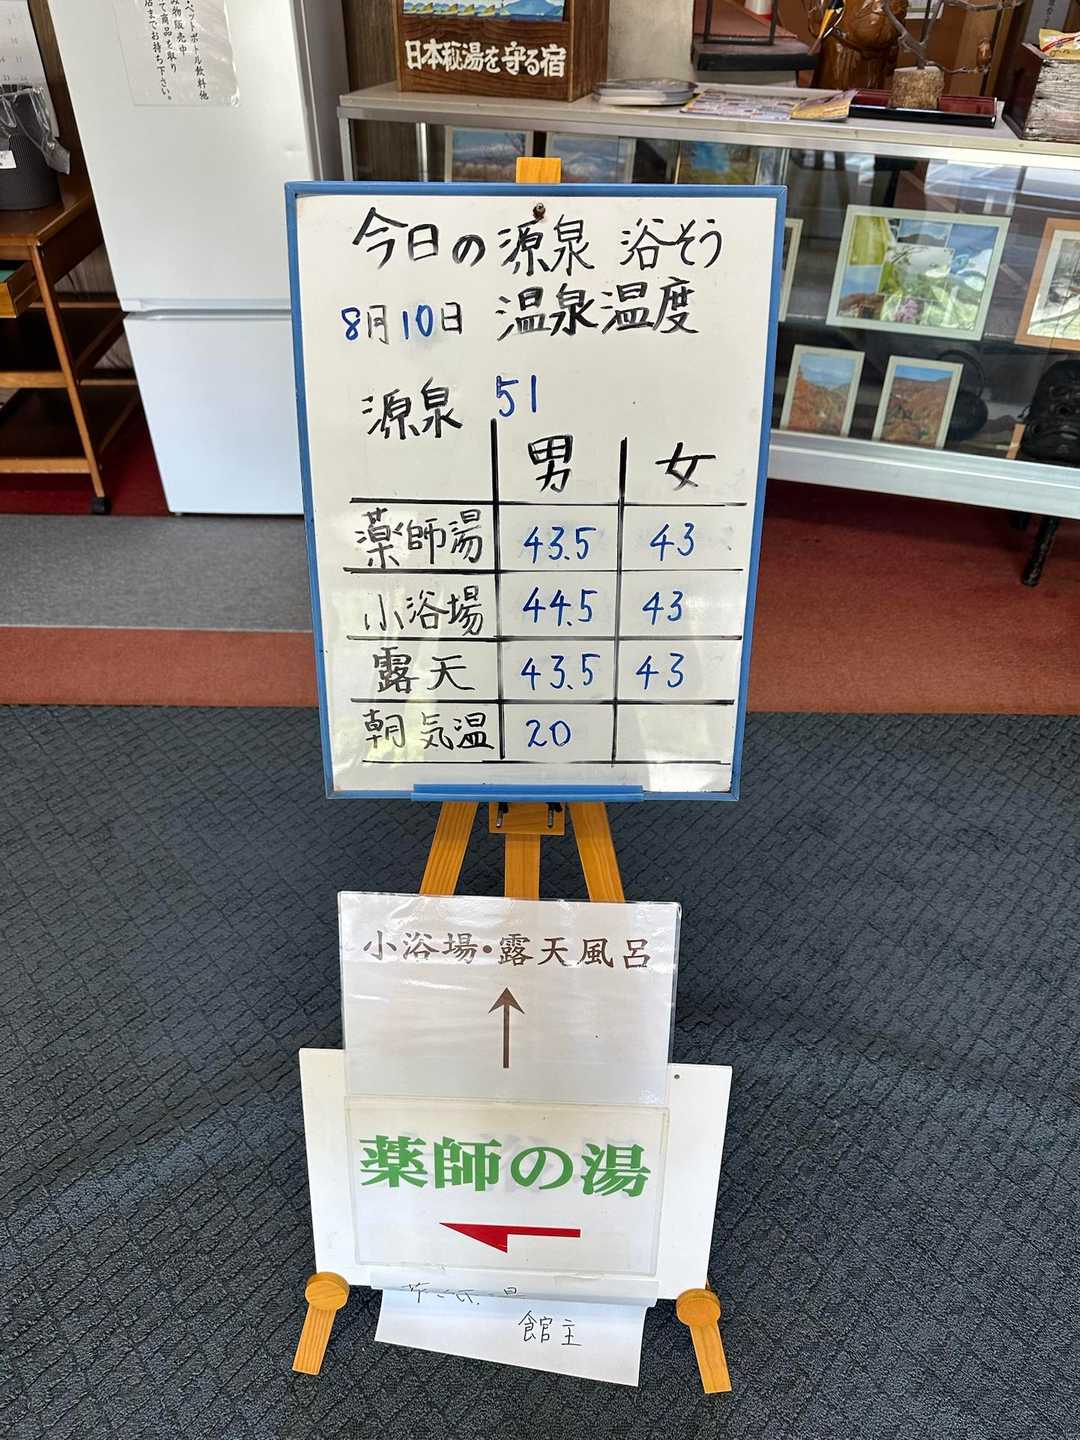 ペットボトル飲料他
物販売中
て商品を取り
店までお持ち下さい。
日本秘湯を守る宿
今日の源泉 浴そう
8月10日 温泉温度
源泉 51
男 女
薬師湯 43.5 43
小浴場 44.5 43
露天 43.5 43
朝気温 20
小浴場・露天風呂
↑
薬師の湯
館主